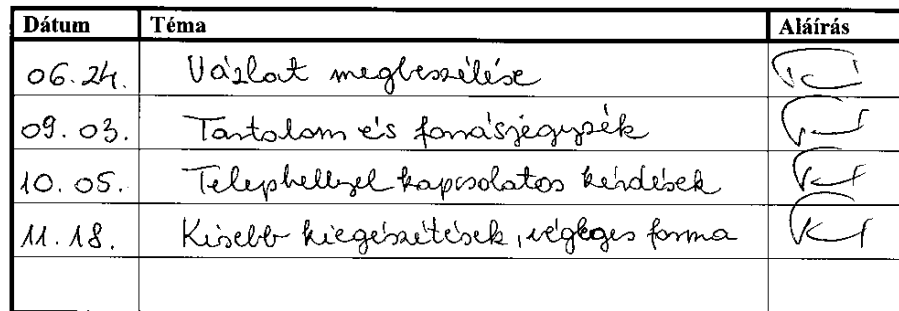 Dátum Téma Aláírás
06.24. Vázlat megbeszélése
09.03. Tartalom és forrásjegyzék
10.05. Telephellyel kapcsolatos kérdések
11.18. Kisebb kiegészítések, végleges forma